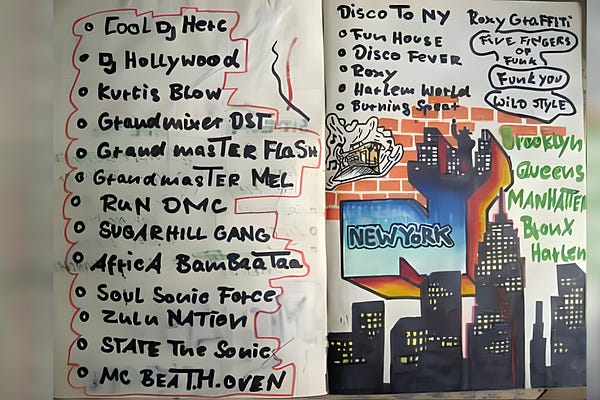 Cool Dj Herc
Dj Hollywood
Kurtis Blow
Grandmixer DST
Grand masTER FlaSH
GrandmasTER MEL
RuN DMC
SUGARHILL GANG
AfricA BamBaaTaa
Soul Sonic Force
Zulu NATION
STATE The Sonic
MC BEATH.OVEN
Disco To NY
Fun House
Disco FEVER
Roxy
Harlem World
Burning Spear
Roxy GRAFFiTi
FiVE FiNGERS
OF
FUNK
FunkyOU
WiLD STYLE
NEWYORK
Brooklyn
Queens
MANHATTEN
BronX
Harlem